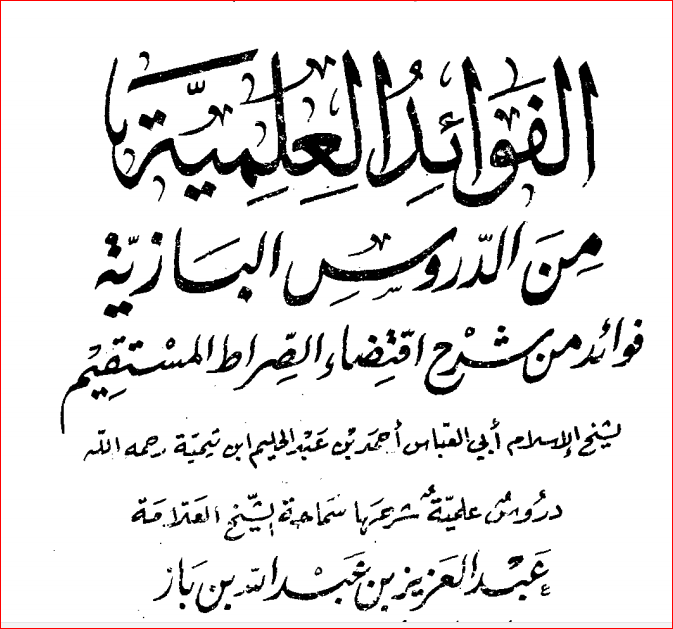 الفَوَائِدُ العِلمِيَّة
مِنَ الدّروسِ البَازيّة
فوائد من شرْح اقتِضاء الصِّراط المسْتقِيْم
لشيخ الإسلام أبي العبّاس أحمَد بْن عَبْد الحليم ابن تيميّة رحمه الله
دروسٌ علميّةٌ شرحَها سَماحة الشّيخ العَلّامَة
عَبْد العَزيز بن عَبْد الله بن بَاز